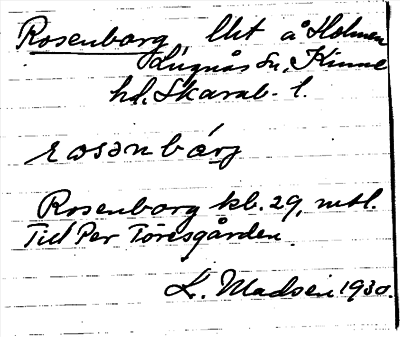 Rosenborg lht å Holmen
Lugnås sn, Kinne
hd. Skarab. l.
rosənbårj
Rosenborg kb. 29, mtl.
Till Per Töresgården.
L. Madsén 1930.